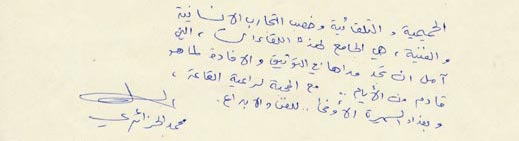 الحميمية و التلقائية وخصب التجارب الانسانية
والفنية ، هي الجامع لهذه اللقاءات ، التي
آمل ان تجد مداها في التوثيق والافادة لما هو
قادم من الأيام .. مع المحبة لراعية القاعة ،
و بغداد .. للفن والابداع .
محمد الجزائري